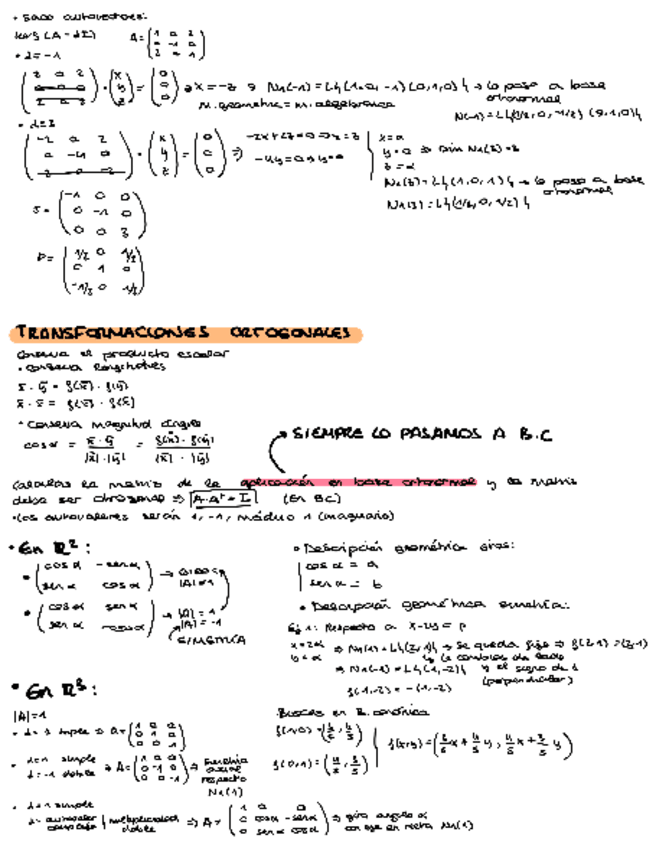 • Saco autovectores:
Ker f (A - λI) A = (1 0 2 / 0 -1 0 / 2 0 1)
• λ = -1
(2 0 2 / 0 0 0 / 2 0 2) · (x / y / z) = (0 / 0 / 0) → x = -z → N1(-1) = L{(1, 0, -1) (0,1,0)} → lo paso a base ortonormal
M. geométrica = M. algebraica
N1(-1) = L{(1/2, 0, -1/2) (0,1,0)}
• λ = 3
(-2 0 2 / 0 -4 0 / 2 0 -2) · (x / y / z) = (0 / 0 / 0) ⇒ -2x + 2z = 0 → x = z
-4y = 0 → y = 0
x = α
y = 0 ⇒ Dim N1(3) =
z = α
N1(3) = L{(1, 0, 1)} → lo paso a base ortonormal
N1(3) = L{(1/2, 0, 1/2)}
J = (-1 0 0 / 0 -1 0 / 0 0 3)
P = (1/2 0 1/2 / 0 1 0 / -1/2 0 1/2)
TRANSFORMACIONES ORTOGONALES
Conserva el producto escalar
• Conserva longitudes
x̄ · ȳ = f(x̄) · f(ȳ)
x̄ · x̄ = f(x̄) · f(x̄)
• Conserva magnitud ángulo
cos α = x̄ · ȳ / |x̄| · |ȳ| = f(x̄) · f(ȳ) / |x̄| · |ȳ|
→ SIEMPRE LO PASAMOS A B.C
Calculas la matriz de la aplicación en base ortonormal y la matriz
debe ser ortogonal ⇒ A·Aᵗ = I (En BC)
• Los autovalores serán 1, -1, módulo 1 (imaginario)
• En R²:
• (cos α -sen α / sen α cos α) → GIROS |A| = 1
• (cos α sen α / sen α -cos α) → |A| = -1
SIMETRÍA
• Descripción geométrica giros:
cos α = a
sen α = b
• Descripción geométrica simetría:
Ej 1: Respecto a x - 2y = 0
x = 2α
y = α ⇒ N1(1) = L{(2,1)} → Se queda fijo ⇒ f(2,1) = (2,1)
⇒ N1(-1) = L{(1,-2)} le cambias de lado y el signo de 1 (perpendicular)
f(1,-2) = -(1,-2)
Buscas en B. canónica
f(1,0) = (3/5, 4/5)
f(x,y) = (3/5 x + 4/5 y,
• En R³:
|A| = 1
• λ = 1 triple ⇒ A = (1 0 0 / 0 1 0 / 0 0 1)
• λ = 1 simple
λ = -1 doble ⇒ A = (1 0 0 / 0 -1 0 / 0 0 -1) → Simetría axial respecto N1(1)
• λ = 1 simple
λ = autovalor complejo | multiplicidad doble ⇒ A = (1 0 0 / 0 cos α -sen α / 0 sen α cos α) ⇒ gira ángulo α con eje en recta N1(1)